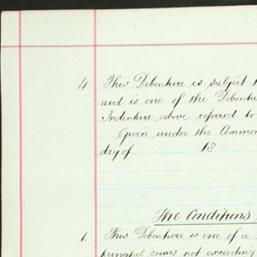 4 This Debenture is subject
and is one of the Debentu
Indenture above referred to
Given under the Common
day of 18
The Conditions
1. This Debenture is one of a
principal sums not exceeding